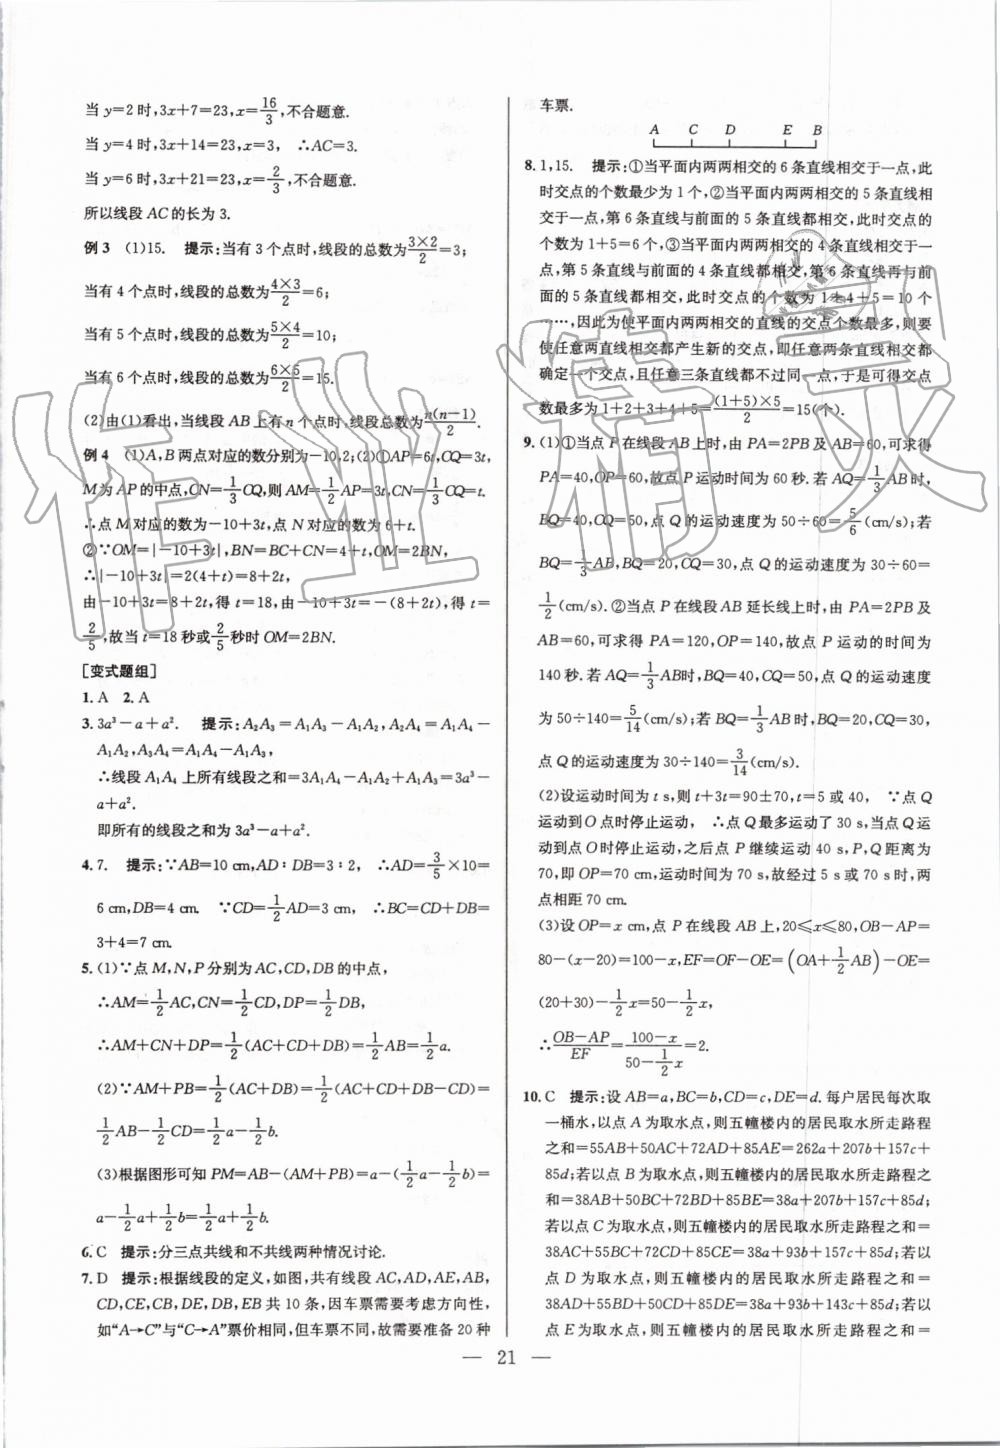 当 y=2 时,3x+7=23,x=16/3,不合题意.
当 y=4 时,3x+14=23,x=3, ∴AC=3.
当 y=6 时,3x+21=23,x=2/3,不合题意.
所以线段 AC 的长为 3.
例 3 (1)15. 提示:当有 3 个点时,线段的总数为3×2/2=3;
当有 4 个点时,线段的总数为4×3/2=6;
当有 5 个点时,线段的总数为5×4/2=10;
当有 6 个点时,线段的总数为6×5/2=15.
(2)由(1)看出,当线段 AB 上有 n 个点时,线段总数为n(n−1)/2.
例 4 (1)A,B 两点对应的数分别为−10,2;(2)①AP=6t,CQ=3t,
M 为 AP 的中点,CN=1/3CQ,则 AM=1/2AP=3t,CN=1/3CQ=t.
∴点 M 对应的数为−10+3t,点 N 对应的数为 6+t.
②∵OM=|−10+3t|,BN=BC+CN=4+t,OM=2BN,
∴|−10+3t|=2(4+t)=8+2t,
由−10+3t=8+2t,得 t=18,由−10+3t=−(8+2t),得 t=
2/5,故当 t=18 秒或2/5秒时 OM=2BN.
[变式题组]
1. A 2. A
3. 3a³−a+a². 提示:A₂A₃=A₁A₃−A₁A₂,A₂A₄=A₁A₄−
A₁A₂,A₃A₄=A₁A₄−A₁A₃,
∴线段 A₁A₄ 上所有线段之和=3A₁A₄−A₁A₂+A₁A₃=3a³−
a+a².
即所有的线段之和为 3a³−a+a².
4. 7. 提示:∵AB=10 cm,AD∶DB=3∶2, ∴AD=3/5×10=
6 cm,DB=4 cm. ∵CD=1/2AD=3 cm, ∴BC=CD+DB=
3+4=7 cm.
5. (1)∵点 M,N,P 分别为 AC,CD,DB 的中点,
∴AM=1/2AC,CN=1/2CD,DP=1/2DB,
∴AM+CN+DP=1/2(AC+CD+DB)=1/2AB=1/2a.
(2)∵AM+PB=1/2(AC+DB)=1/2(AC+CD+DB−CD)=
1/2AB−1/2CD=1/2a−1/2b.
(3)根据图形可知 PM=AB−(AM+PB)=a−(1/2a−1/2b)=
a−1/2a+1/2b=1/2a+1/2b.
6. C 提示:分三点共线和不共线两种情况讨论.
7. D 提示:根据线段的定义,如图,共有线段 AC,AD,AE,AB,
CD,CE,CB,DE,DB,EB 共 10 条,因车票需要考虑方向性,
如“A→C”与“C→A”票价相同,但车票不同,故需要准备 20 种
车票.
A C D E B
8. 1,15. 提示:①当平面内两两相交的 6 条直线相交于一点,此
时交点的个数最少为 1 个,②当平面内两两相交的 5 条直线相
交于一点,第 6 条直线与前面的 5 条直线都相交,此时交点的
个数为 1+5=6 个,③当平面内两两相交的 4 条直线相交于一
点,第 5 条直线与前面的 4 条直线都相交,第 6 条直线再与前
面的 5 条直线都相交,此时交点的个数为 1+4+5=10 个
……,因此为使平面内两两相交的直线的交点个数最多,则要
使任意两直线相交都产生新的交点,即任意两条直线相交都
确定一个交点,且任意三条直线都不过同一点,于是可得交点
数最多为 1+2+3+4+5=(1+5)×5/2=15(个).
9. (1)①当点 P 在线段 AB 上时,由 PA=2PB及 AB=60,可求得
PA=40,OP=60,故点 P 运动时间为 60 秒.若 AQ=1/3AB时,
BQ=40,CQ=50,点 Q 的运动速度为 50÷60=5/6(cm/s);若
BQ=1/3AB时,BQ=20,CQ=30,点 Q 的运动速度为 30÷60=
1/2(cm/s).②当点 P 在线段 AB 延长线上时,由 PA=2PB 及
AB=60,可求得 PA=120,OP=140,故点 P 运动的时间为
140 秒.若 AQ=1/3AB 时,BQ=40,CQ=50,点 Q 的运动速度
为 50÷140=5/14(cm/s);若 BQ=1/3AB 时,BQ=20,CQ=30,
点 Q 的运动速度为 30÷140=3/14(cm/s).
(2)设运动时间为 t s,则 t+3t=90±70,t=5 或 40, ∵点 Q
运动到 O 点时停止运动, ∴点 Q 最多运动了 30 s,当点 Q 运
动到点O时停止运动,之后点 P 继续运动 40 s,P,Q 距离为
70,即 OP=70 cm,运动时间为 70 s,故经过 5 s 或 70 s 时,两
点相距 70 cm.
(3)设 OP=x cm,点 P 在线段 AB 上,20≤x≤80,OB−AP=
80−(x−20)=100−x,EF=OF−OE=(OA+1/2AB)−OE=
(20+30)−1/2x=50−1/2x,
∴(OB−AP)/EF=(100−x)/(50−1/2x)=2.
10. C 提示:设 AB=a,BC=b,CD=c,DE=d.每户居民每次取
一桶水,以点 A 为取水点,则五幢楼内的居民取水所走路程
之和=55AB+50AC+72AD+85AE=262a+207b+157c+
85d;若以点 B 为取水点,则五幢楼内的居民取水所走路程之
和=38AB+50BC+72BD+85BE=38a+207b+157c+85d;
若以点 C 为取水点,则五幢楼内的居民取水所走路程之和=
38AC+55BC+72CD+85CE=38a+93b+157c+85d;若以
点 D 为取水点,则五幢楼内的居民取水所走路程之和=
38AD+55BD+50CD+85DE=38a+93b+143c+85d;若以
点 E为取水点,则五幢楼内的居民取水所走路程之和=
— 21 —
作业精灵